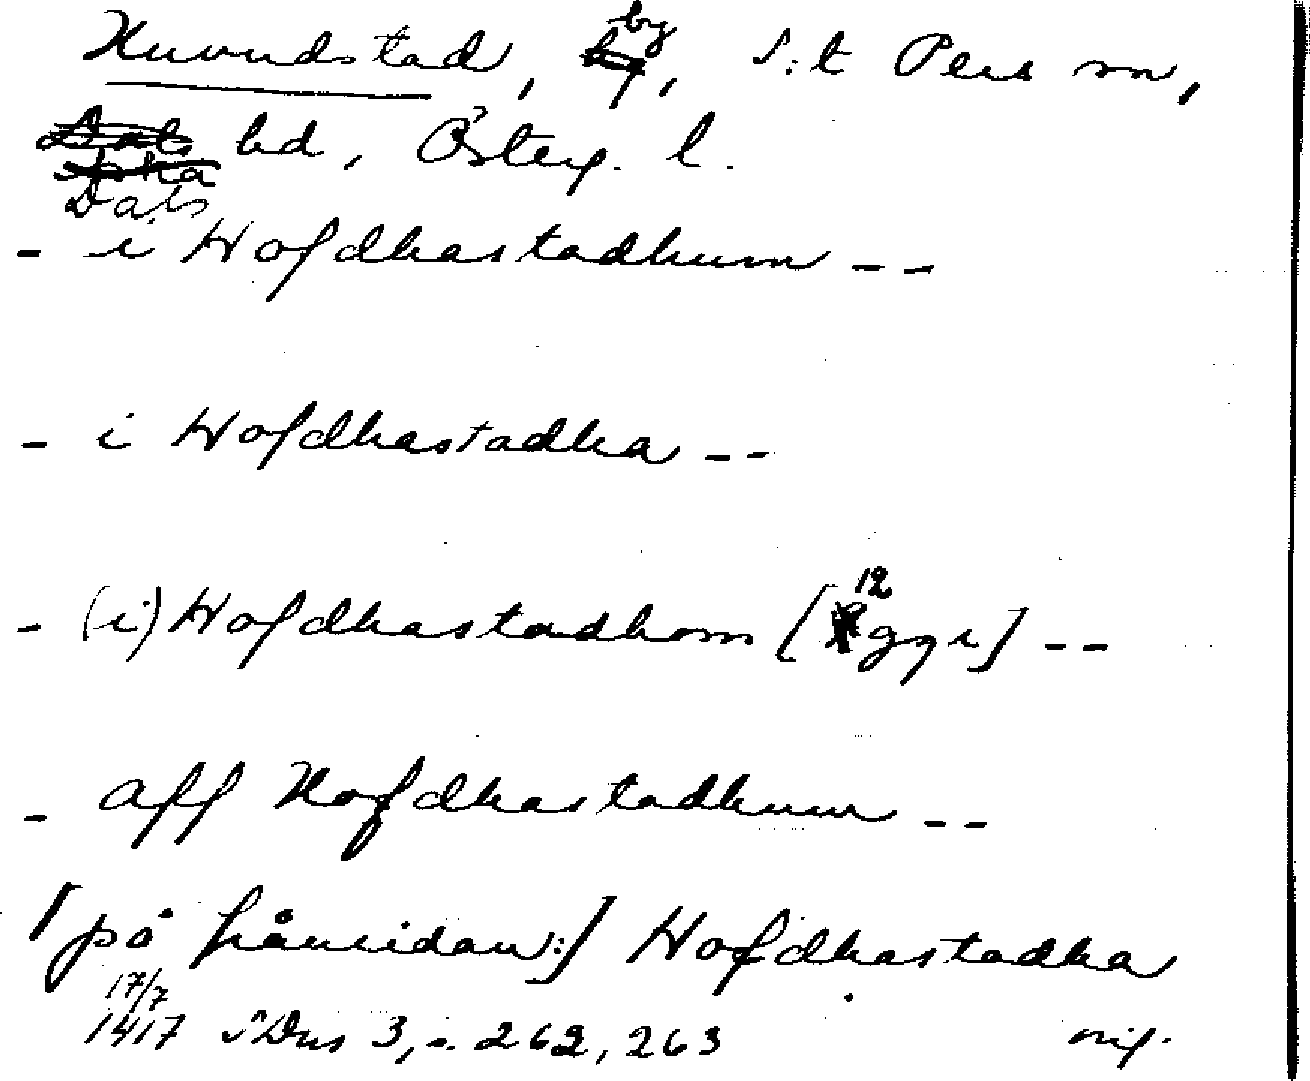 Huvudstad, by, S:t Pers sn,
Dals hd, Österg. l.
- i Hofdhastadhum --
- i Hofdhastadha --
- (i) Hofdhastadhom [12 ggr] --
- aff Hofdhastadhum --
[på frånsidan:] Hofdhastadha
17/7
1417 SDns 3, s. 262, 263 orig.